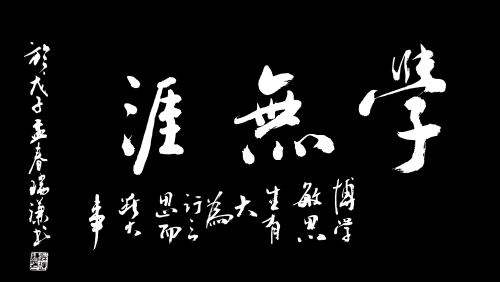 學無涯
博学
敏思
生有
大
為
行之
思而
大
事
於戊子孟春瑞谦书